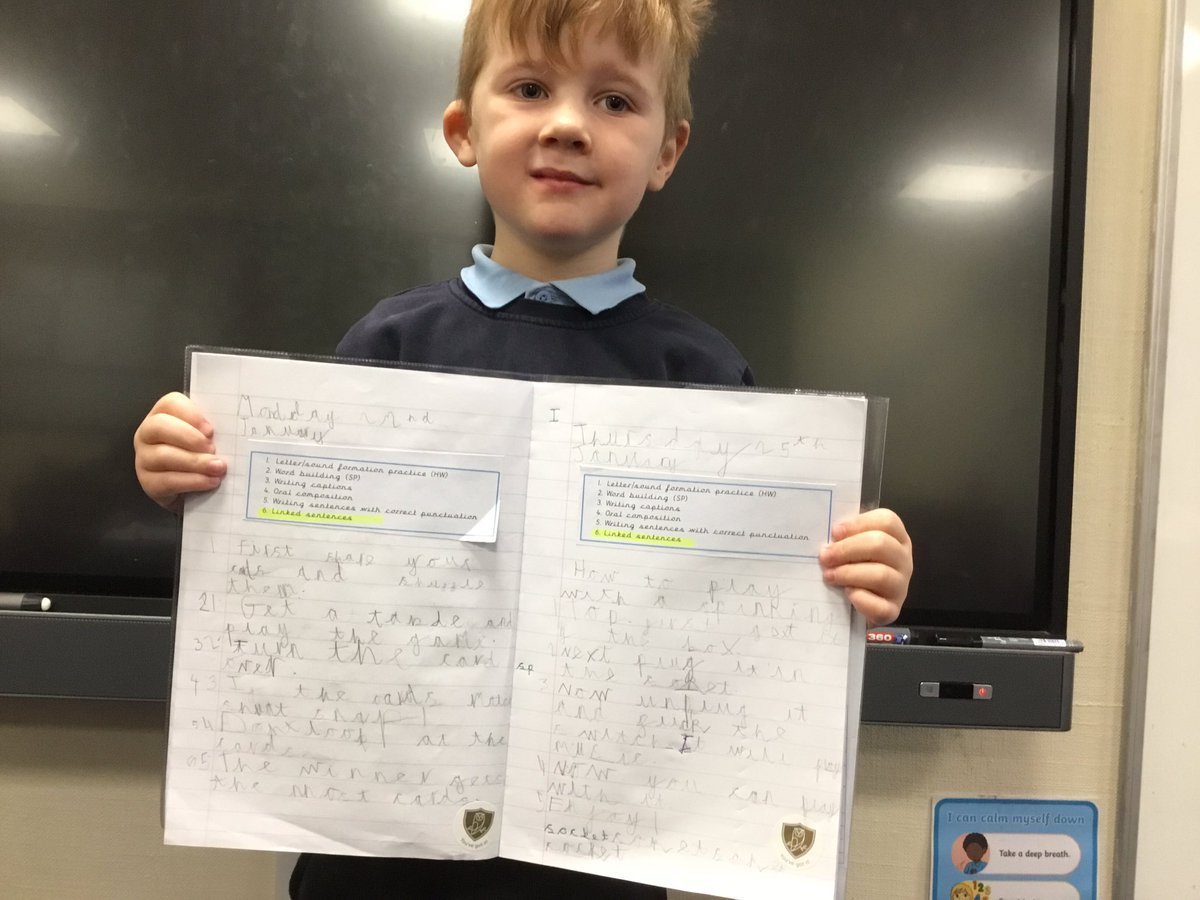 Monday 22nd
January
1. Letter/sound formation practice (HW)
2. Word building (SP)
3. Writing captions
4. Oral composition
5. Writing sentences with correct punctuation
6. Linked sentences
1 First your
and shuffle
them.
2 Get a and
play the game.
3 turn the card
over.
4 the cards
snap!
Don't look at the
cards.
The winner gets
the most cards.
I
Thursday 25th
January
1. Letter/sound formation practice (HW)
2. Word building (SP)
3. Writing captions
4. Oral composition
5. Writing sentences with correct punctuation
6. Linked sentences
How to play
with a spinning
top. get
the box.
Next plug it in
sp the
Now unplug it
and the
switch. It will play
Now you can play
with it
Enjoy!
socket
You've got it!
You've got it!
360
I can calm myself down
Take a deep breath.